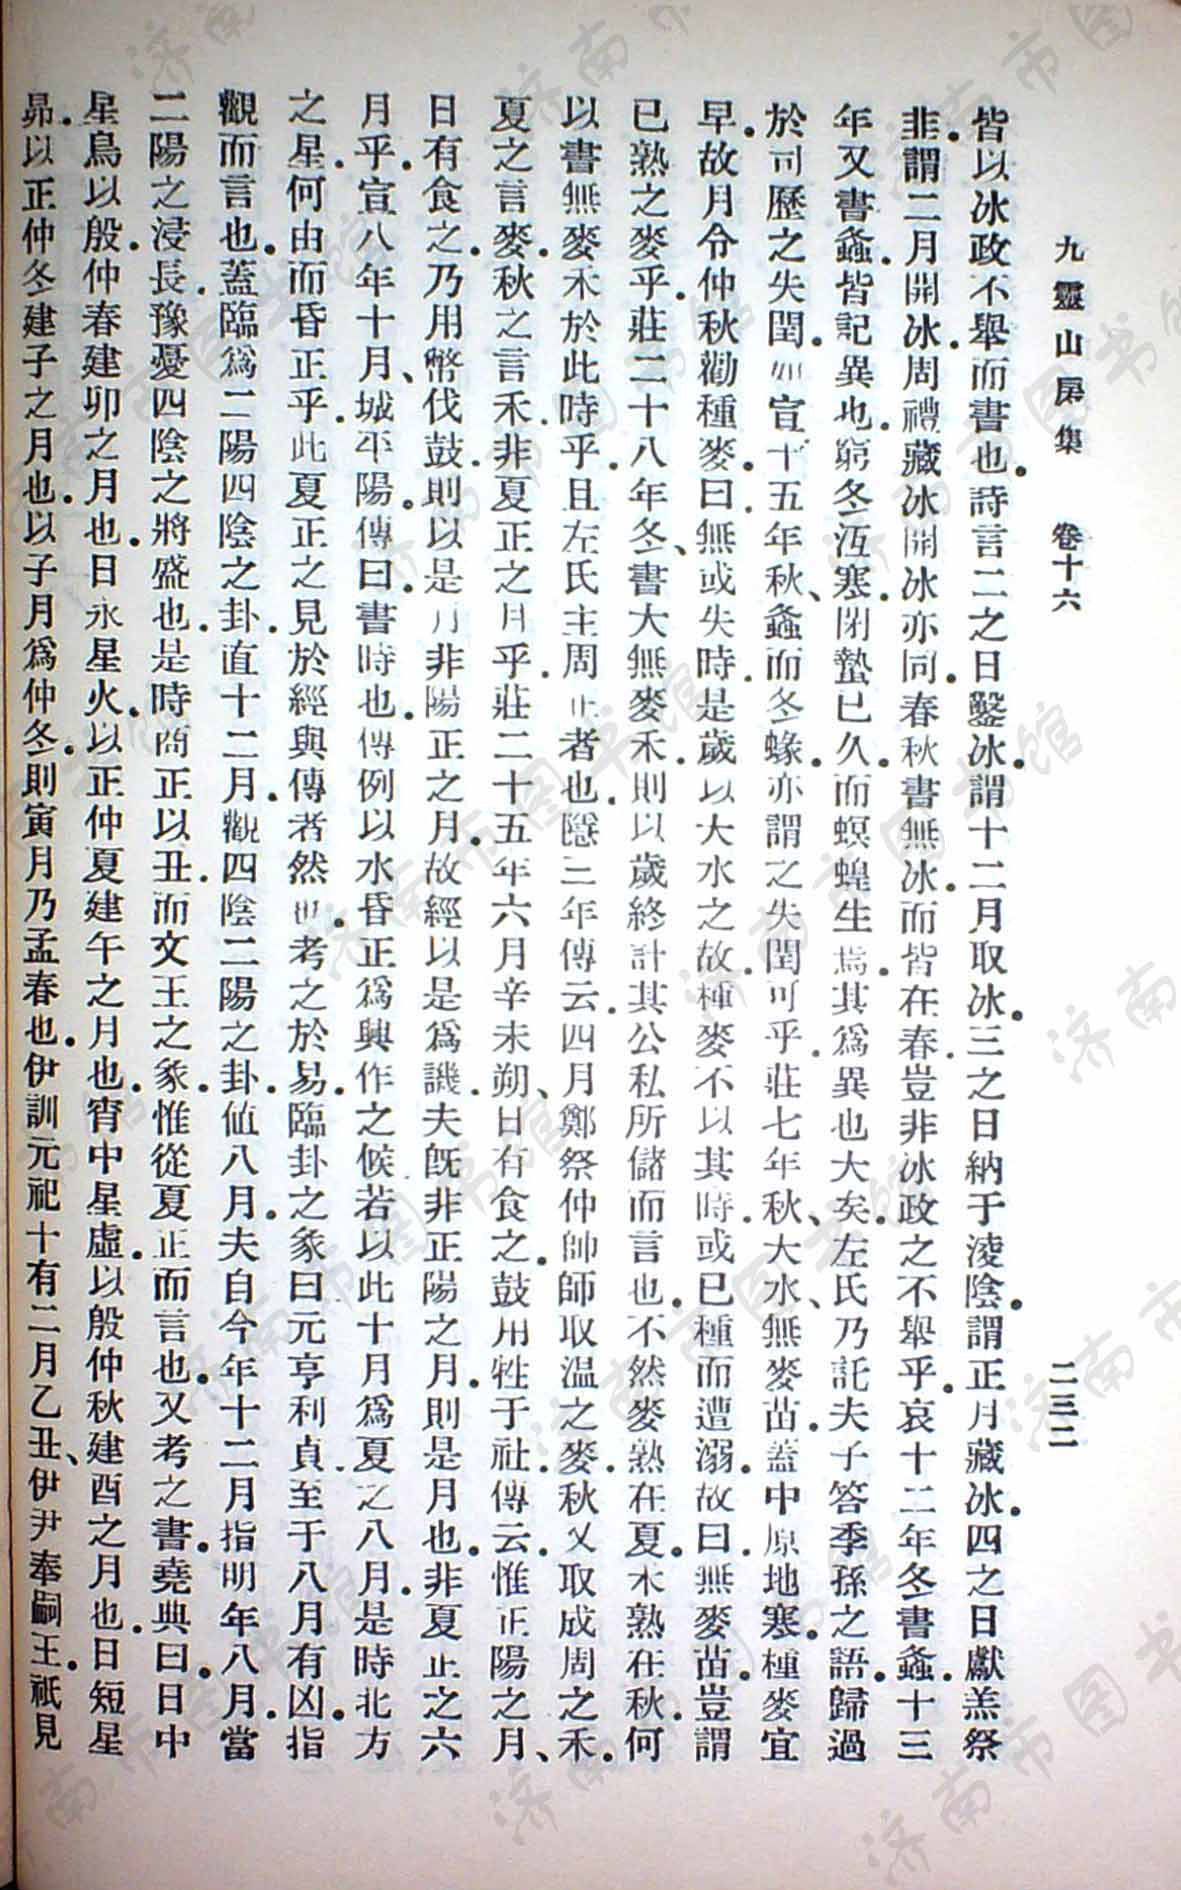 九靈山房集　卷十六　二三二
皆以冰政不舉而書也。詩言二之日鑿冰。謂十二月取冰。三之日納于淩陰。謂正月藏冰。四之日獻羔祭
韭。謂二月開冰。周禮藏冰開冰亦同。春秋書無冰。而皆在春。豈非冰政之不舉乎。哀十二年冬書螽。十三
年又書螽。皆記異也。窮冬沍寒。閉蟄已久。而螟蝗生焉。其爲異也大矣。左氏乃託夫子答季孫之語。歸過
於司歷之失閏。如宣十五年秋、螽而冬蝝。亦謂之失閏可乎。莊七年秋、大水、無麥苗。蓋中原地寒。種麥宜
早。故月令仲秋勸種麥。曰。無或失時。是歲以大水之故。種麥不以其時。或已種而遭溺。故曰。無麥苗。豈謂
已熟之麥乎。莊二十八年冬、書大無麥禾。則以歲終計其公私所儲而言也。不然麥熟在夏。禾熟在秋。何
以書無麥禾於此時乎。且左氏主周正者也。隱三年傳云。四月鄭祭仲帥師取温之麥。秋又取成周之禾。
夏之言麥。秋之言禾。非夏正之月乎。莊二十五年六月辛未朔、日有食之。鼓用牲于社。傳云。惟正陽之月、
日有食之。乃用幣伐鼓。則以是月非陽正之月。故經以是爲譏。夫旣非正陽之月。則是月也。非夏正之六
月乎。宣八年十月、城平陽。傳曰。書時也。傳例以水昏正爲興作之候。若以此十月爲夏之八月。是時北方
之星。何由而昏正乎。此夏正之見於經與傳者然也。考之於易。臨卦之彖曰元亨利貞。至于八月有凶。指
觀而言也。蓋臨爲二陽四陰之卦。直十二月。觀四陰二陽之卦。值八月。夫自今年十二月指明年八月。當
二陽之浸長。豫憂四陰之將盛也。是時商正以丑。而文王之彖。惟從夏正而言也。又考之書。堯典曰。日中
星鳥以殷。仲春建卯之月也。日永星火。以正仲夏建午之月也。宵中星虛。以殷仲秋建酉之月也。日短星
昴。以正仲冬建子之月也。以子月爲仲冬。則寅月乃孟春也。伊訓元祀十有二月乙丑、伊尹奉嗣王。祇見